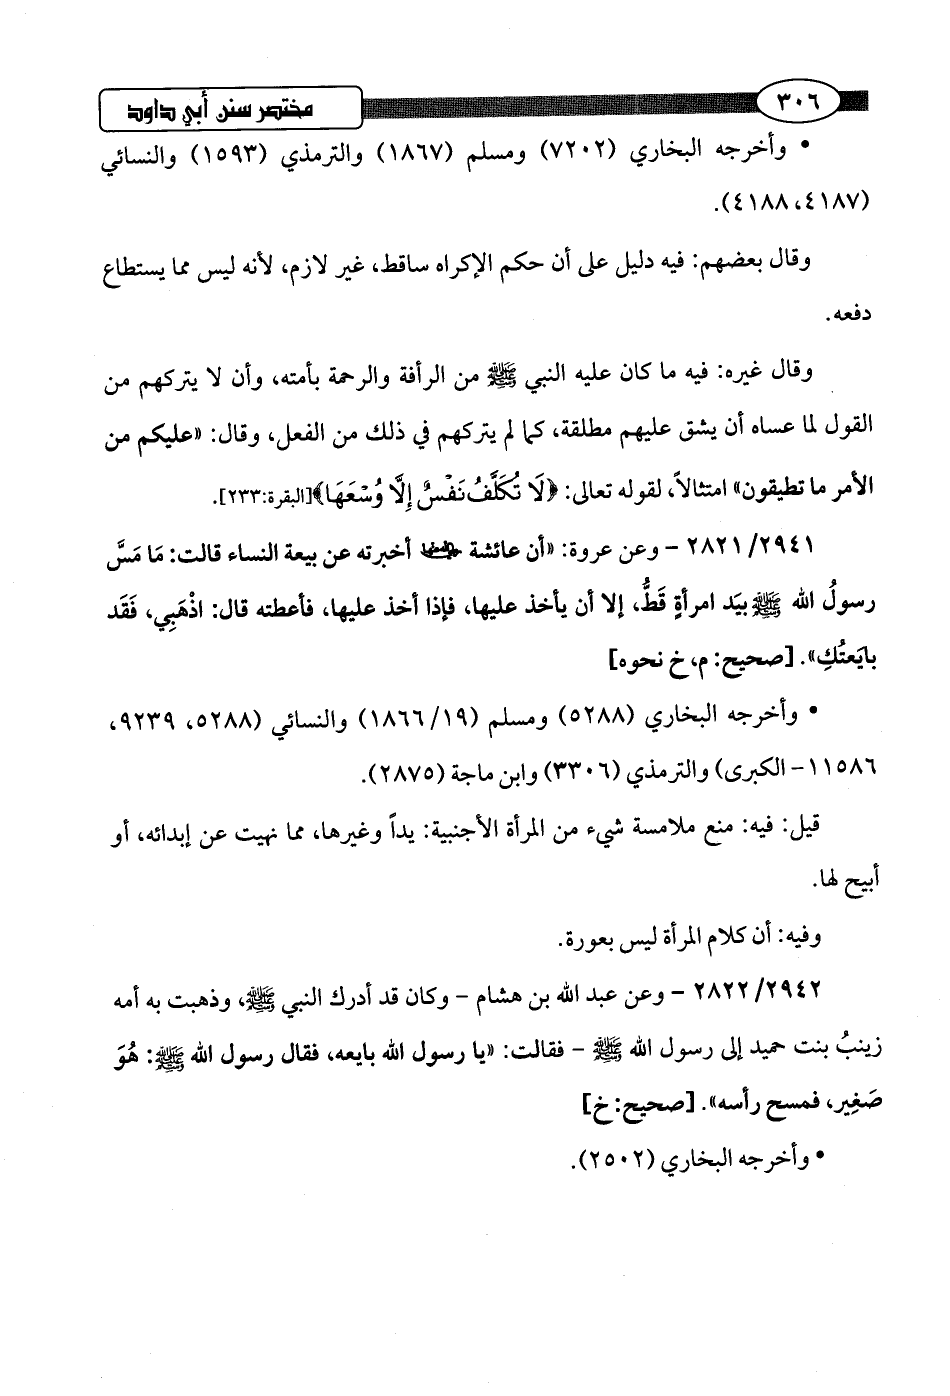 ٣٠٦ مختصر سنن أبي داود
• وأخرجه البخاري (٧٢٠٢) ومسلم (١٨٦٧) والترمذي (١٥٩٣) والنسائي
(٤١٨٧، ٤١٨٨).
وقال بعضهم: فيه دليل على أن حكم الإكراه ساقط، غير لازم، لأنه ليس مما يستطاع
دفعه.
وقال غيره: فيه ما كان عليه النبي ﷺ من الرأفة والرحمة بأمته، وأن لا يتركهم من
القول لما عساه أن يشق عليهم مطلقة، كما لم يتركهم في ذلك من الفعل، وقال: «عليكم من
الأمر ما تطيقون» امتثالاً، لقوله تعالى: ﴿لَا تُكَلَّفُ نَفْسٌ إِلَّا وُسْعَهَا﴾[البقرة:٢٣٣].
٢٨٢١/٢٩٤١ – وعن عروة: «أن عائشة رضي الله عنها أخبرته عن بيعة النساء قالت: مَا مَسَّ
رسولُ الله ﷺ بيَد امرأةٍ قَطُّ، إلا أن يأخذ عليها، فإذا أخذ عليها، فأعطته قال: اذْهَبِي، فَقَد
بايَعتُكِ». [صحيح: م، خ نحوه]
• وأخرجه البخاري (٥٢٨٨) ومسلم (١٨٦٦/١٩) والنسائي (٥٢٨٨، ٩٢٣٩،
١١٥٨٦- الكبرى) والترمذي (٣٣٠٦) وابن ماجة (٢٨٧٥).
قيل: فيه: منع ملامسة شيء من المرأة الأجنبية: يداً وغيرها، مما نهيت عن إبدائه، أو
أبيح لها.
وفيه: أن كلام المرأة ليس بعورة.
٢٨٢٢/٢٩٤٢ – وعن عبد الله بن هشام – وكان قد أدرك النبي ﷺ، وذهبت به أمه
زينبُ بنت حميد إلى رسول الله ﷺ – فقالت: «يا رسول الله بايعه، فقال رسول الله ﷺ: هُوَ
صَغِير، فمسح رأسه». [صحيح: خ]
• وأخرجه البخاري (٢٥٠٢).